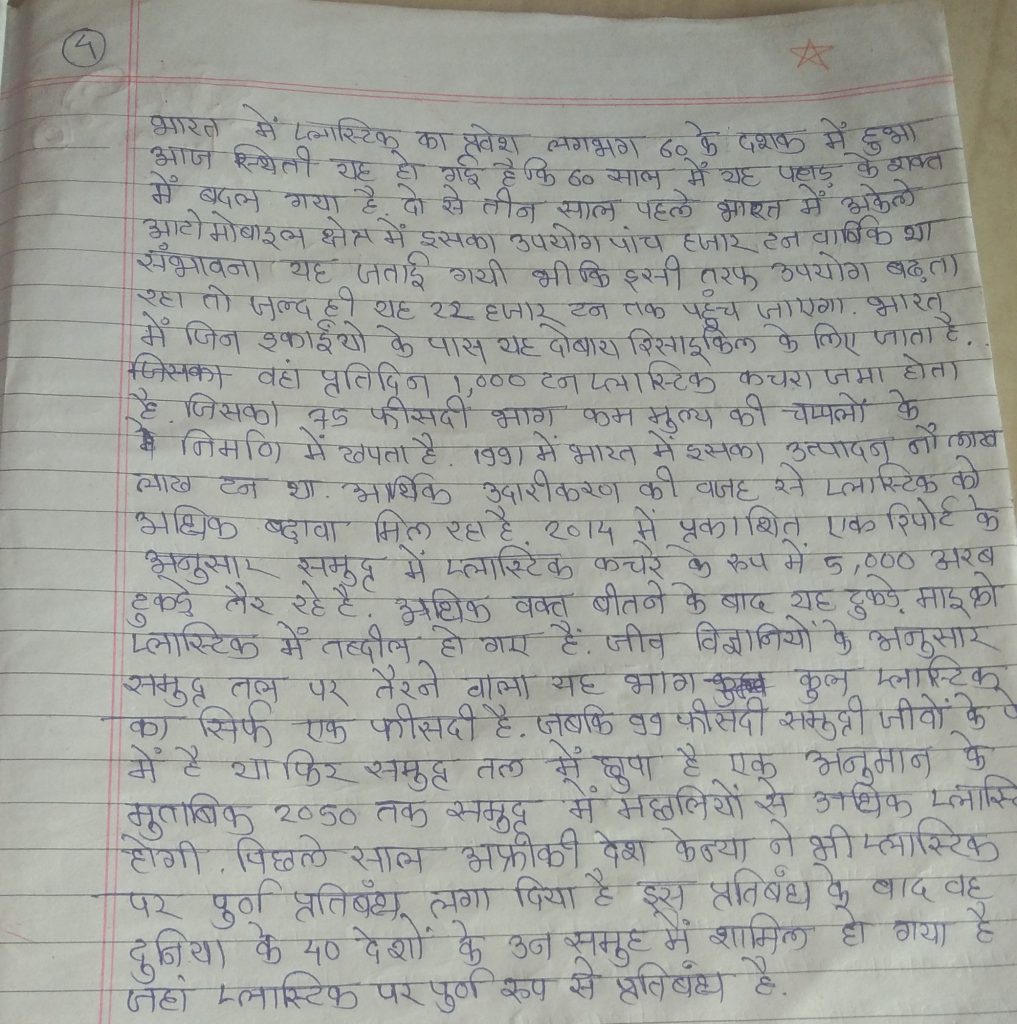 4
भारत में प्लास्टिक का प्रवेश लगभग 60 के दशक में हुआ
आज स्थिती यह हो गई है कि 60 साल में यह पहाड़ के शक्ल
में बदल गया है. दो से तीन साल पहले भारत में अकेले
आटोमोबाइल क्षेत्र में इसका उपयोग पांच हजार टन वार्षिक था
सँभावना यह जताई गयी थी कि इसी तरफ उपयोग बढ़ता
रहा तो जल्द ही यह 22 हजार टन तक पहुंच जाएगा. भारत
में जिन इकाईयो के पास यह दोबारा रिसाइकिल के लिए जाता है.
जिसका वहां प्रतिदिन 1,000 टन प्लास्टिक कचरा जमा होता
है. जिसका 75 फीसदी भाग कम मुल्य की चप्पलों के
निर्माण में खपता है. 1991 में भारत में इसका उत्पादन नौ लाख
लाख टन था. आर्थिक उदारीकरण की वजह से प्लास्टिक को
अधिक बढ़ावा मिल रहा है. 2014 में प्रकाशित एक रिपोर्ट के
अनुसार समुद्र में प्लास्टिक कचरे के रुप में 5,000 अरब
टुकड़े तैर रहे है. अधिक वक्त बीतने के बाद यह टुकड़े माइक्रो
प्लास्टिक में तब्दील हो गए हैं. जीव विज्ञानियों के अनुसार
समुद्र तल पर तैरने वाला यह भाग कुल प्लास्टिक
का सिर्फ एक फीसदी है. जबकि 99 फीसदी समुद्री जीवों के
में है या फिर समुद्र तल में छुपा है एक अनुमान के
मुताबिक 2050 तक समुद्र में मछलियों से अधिक प्लास्टि
होगी. पिछले साल अफ्रीकी देश केन्या ने भी प्लास्टिक
पर पुर्ण प्रतिबँध लगा दिया है इस प्रतिबंध के बाद वह
दुनिया के 40 देशों के उन समुह में शामिल हो गया है
जहां प्लास्टिक पर पुर्ण रुप से प्रतिबंध है.